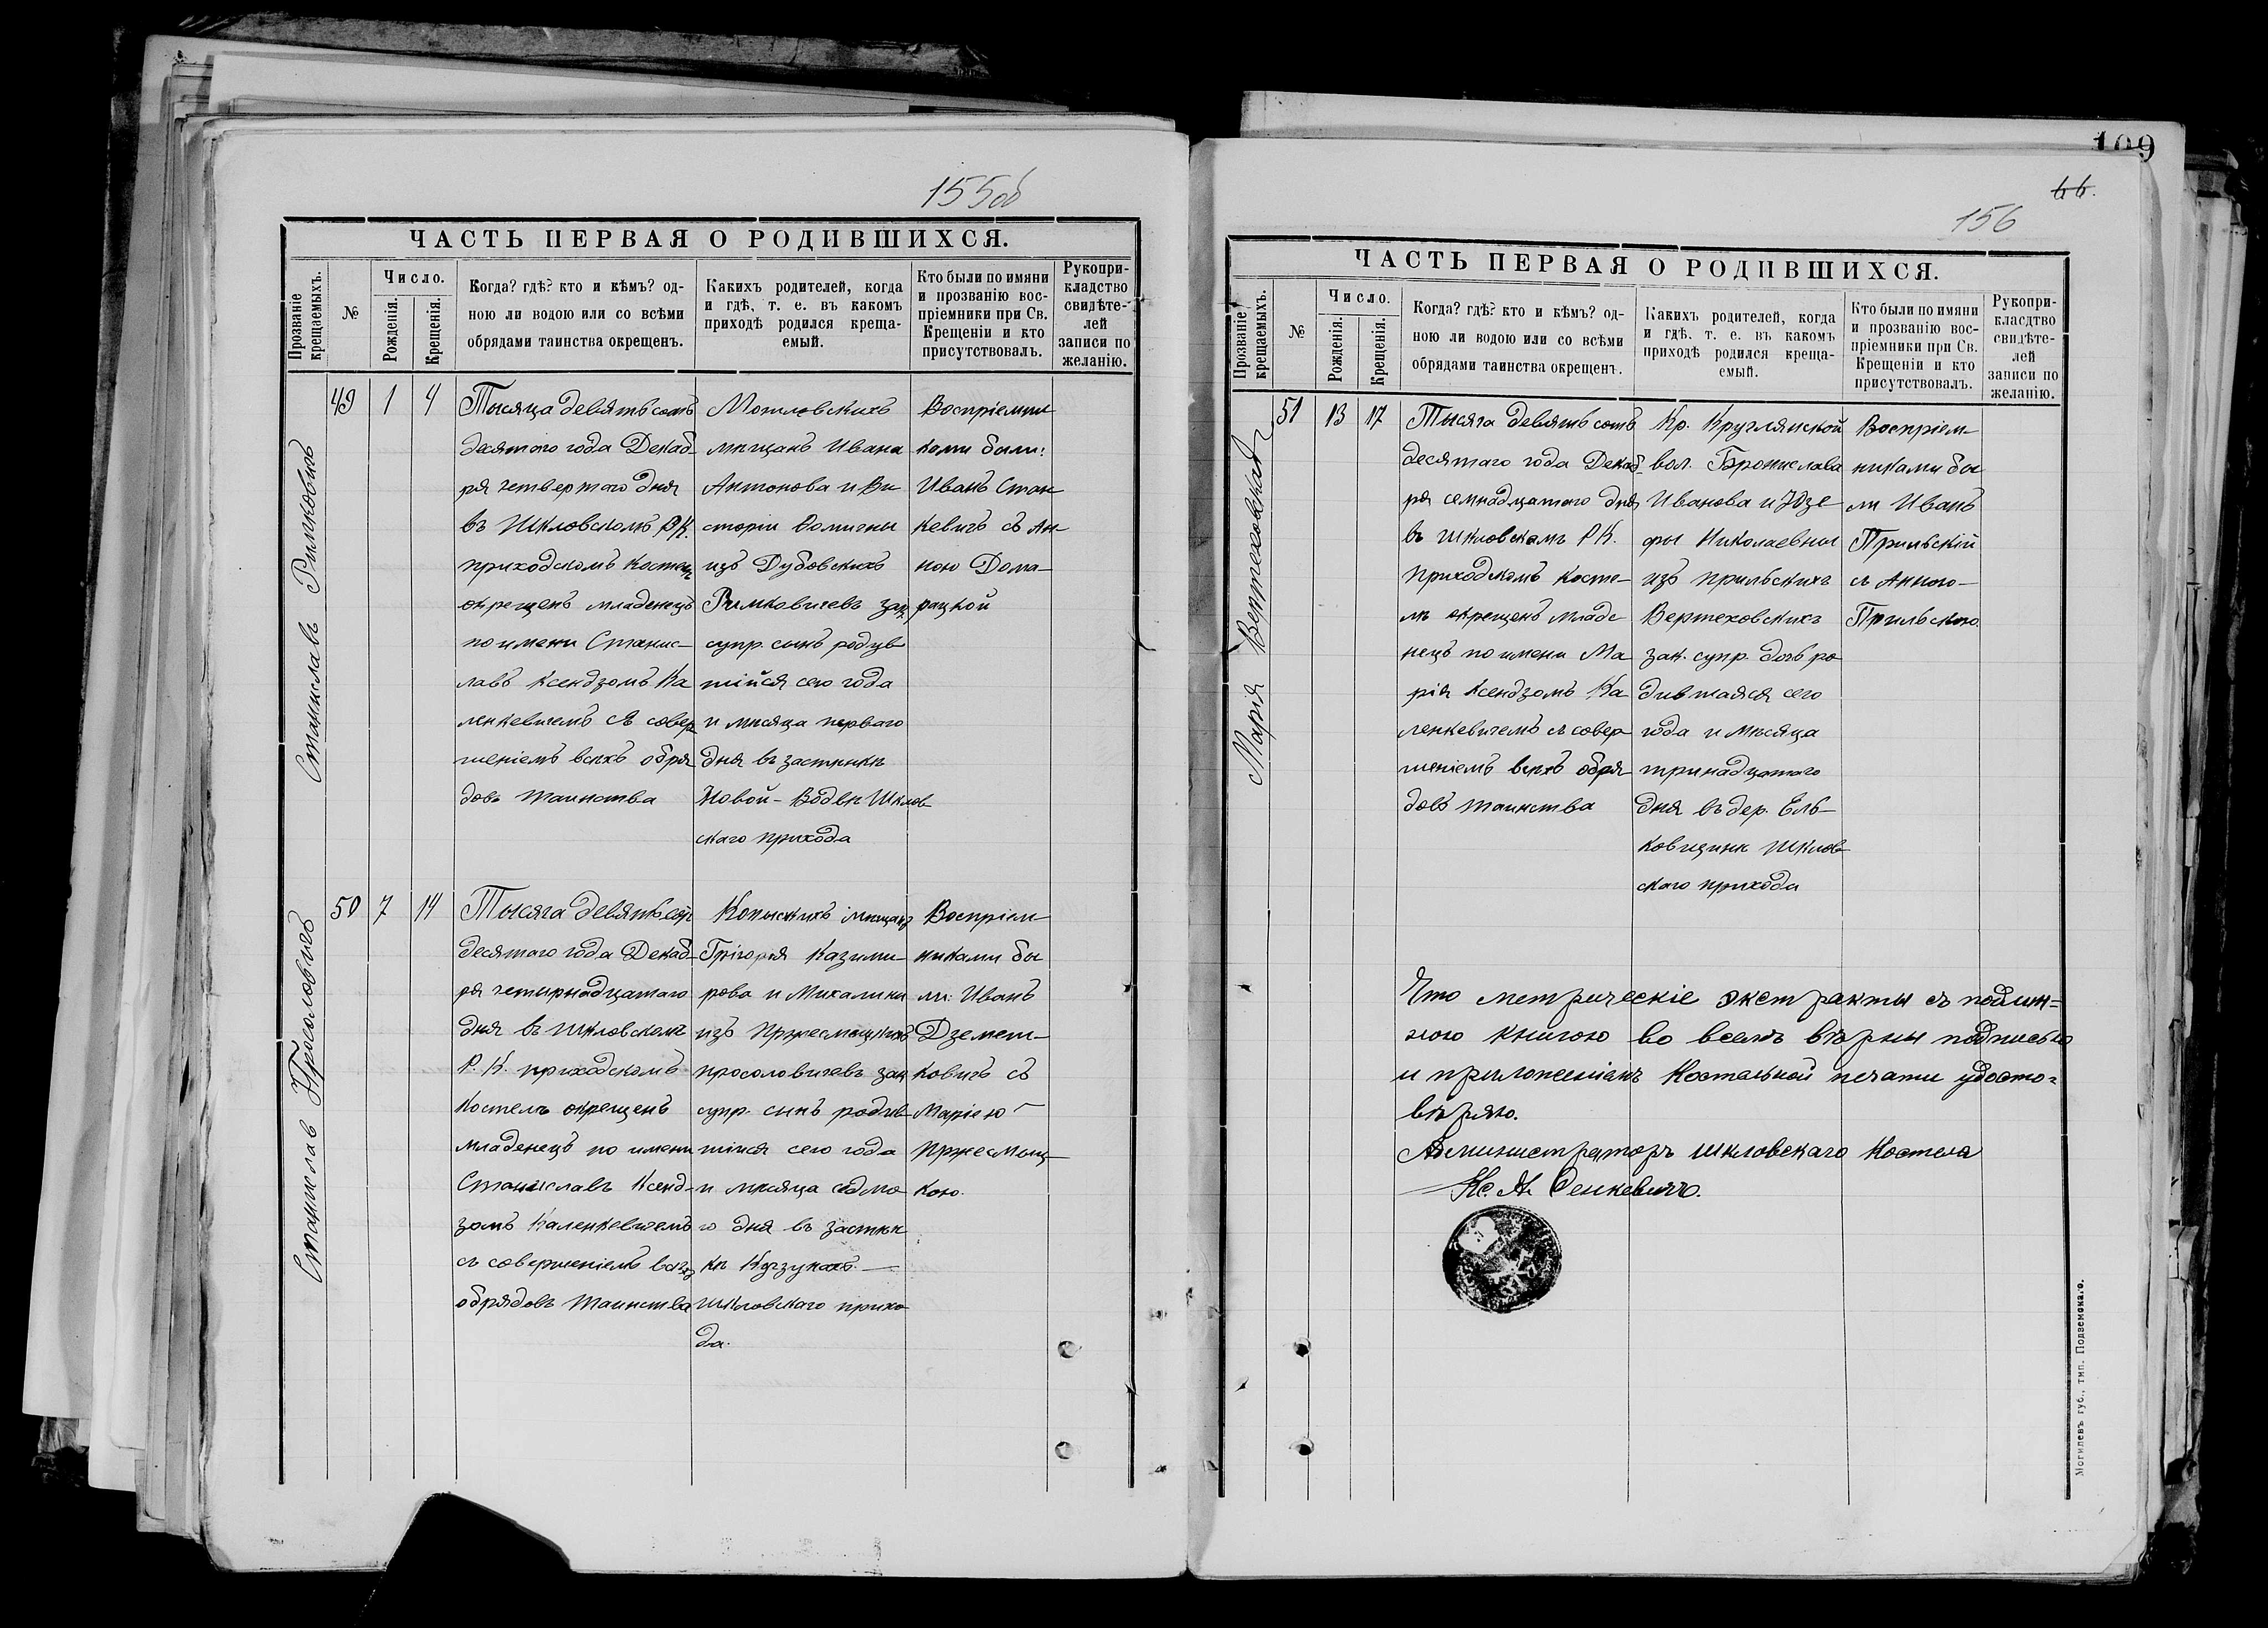 155 об
ЧАСТЬ ПЕРВАЯ О РОДИВШИХСЯ.
Прозваніе крещаемыхъ.
№
Число.
Рожденія.
Крещенія.
Когда? гдѣ? кто и кѣмъ? од-
ною ли водою или со всѣми
обрядами таинства окрещенъ.
Какихъ родителей, когда
и гдѣ, т. е. въ какомъ
приходѣ родился креща-
емый.
Кто были по имяни
и прозванію вос-
пріемники при Св.
Крещеніи и кто
присутствовалъ.
Рукопри-
кладство
свидѣте-
лей
записи по
желанію.
Станиславъ Римковичъ
49
1
4
Тысяца девятьсотъ
десятого года Декаб
ря четвертого дня
въ Шкловскомъ Р.К.
приходскомъ костел
окрещенъ младенецъ
по имени Станис-
лавъ Ксендзомъ Ка
ленкевичемъ съ совер
шеніемъ всѣхъ обря
довъ таинства
Могиловскихъ
мѣщанъ Ивана
Антонова и Ви
сторіи Домичны
изъ Дубовскихъ
Римковичевъ зак
супр. сынъ родив
шійся сего года
и мѣсяца перваго
дня въ застѣнкѣ
Новой-Водвѣ Шклов
скаго прихода
Воспріемни
ками были:
Иванъ Стан
кевичъ съ Ан-
ною Дома-
рацкой
Станислав Просоловичъ
50
7
14
Тысяга девятьсот
десятаго года Декаб-
ря четырнадцатаго
дня въ Шкловскомъ
Р. К. приходскомъ
костелѣ окрещенъ
младенецъ по имени
Станиславъ Ксенд-
зомъ Каленкевичемъ
съ совершеніемъ всѣхъ
обрядовъ таинства
Копыскихъ мѣщанъ
Григорія Казими-
рова и Михалины
изъ Пржесмыцкихъ
Просоловичевъ зак
супр. сынъ родив
шійся сего года
и мѣсяца седмо
го дня въ застѣн
кѣ Кугзунахъ-
Шкловскаго прихо
да.
Воспріем-
никами бы
ли: Иванъ
Дземеш-
ковичъ съ
Маріею-
Пржесмыц-
кою.
109
66.
156
ЧАСТЬ ПЕРВАЯ О РОДИВШИХСЯ.
Прозваніе крещаемыхъ.
№
Число.
Рожденія.
Крещенія.
Когда? гдѣ? кто и кѣмъ? од-
ною ли водою или со всѣми
обрядами таинства окрещенъ.
Какихъ родителей, когда
и гдѣ, т. е. въ какомъ
приходѣ родился креща-
емый.
Кто были по имяни
и прозванію вос-
пріемники при Св.
Крещеніи и кто
присутствовалъ.
Рукопри-
класдтво
свидѣте-
лей
записи по
желанію.
Марія Вертеховская
51
13
17
Тысяга девятьсотъ
десятаго года Декаб-
ря семнадцатого дня
въ Шкловскомъ Р К.
приходскомъ косте-
лѣ окрещенъ младе
нецъ по имени Ма
рія Ксендзомъ Ка
ленкевичемъ съ совер
шеніемъ всѣхъ обря
довъ таинства
Кр. Круглянской
вол. Бронислава
Иванова и Юзе-
фы Николаевны
изъ Прильскихъ
Вертеховскихъ
зак. супр. дочь ро
дившаяся сего
года и мѣсяца
тринадцатаго
дня въ дер. Ель-
ковщинѣ Шклов-
скаго прихода
Воспріем-
никами бы
ли Иванъ
Прильскій
съ Анною-
Прильскою.
Что метрическіе экстракты съ подлин=
ною книгою во всемъ вѣрны подписью
и приложеніемъ Костельной печати удосто=
вѣряю.
Администраторъ Шкловскаго Костела
Кс. А. Сенкевичъ.
Могилевъ губ., тип. Подземскаго.